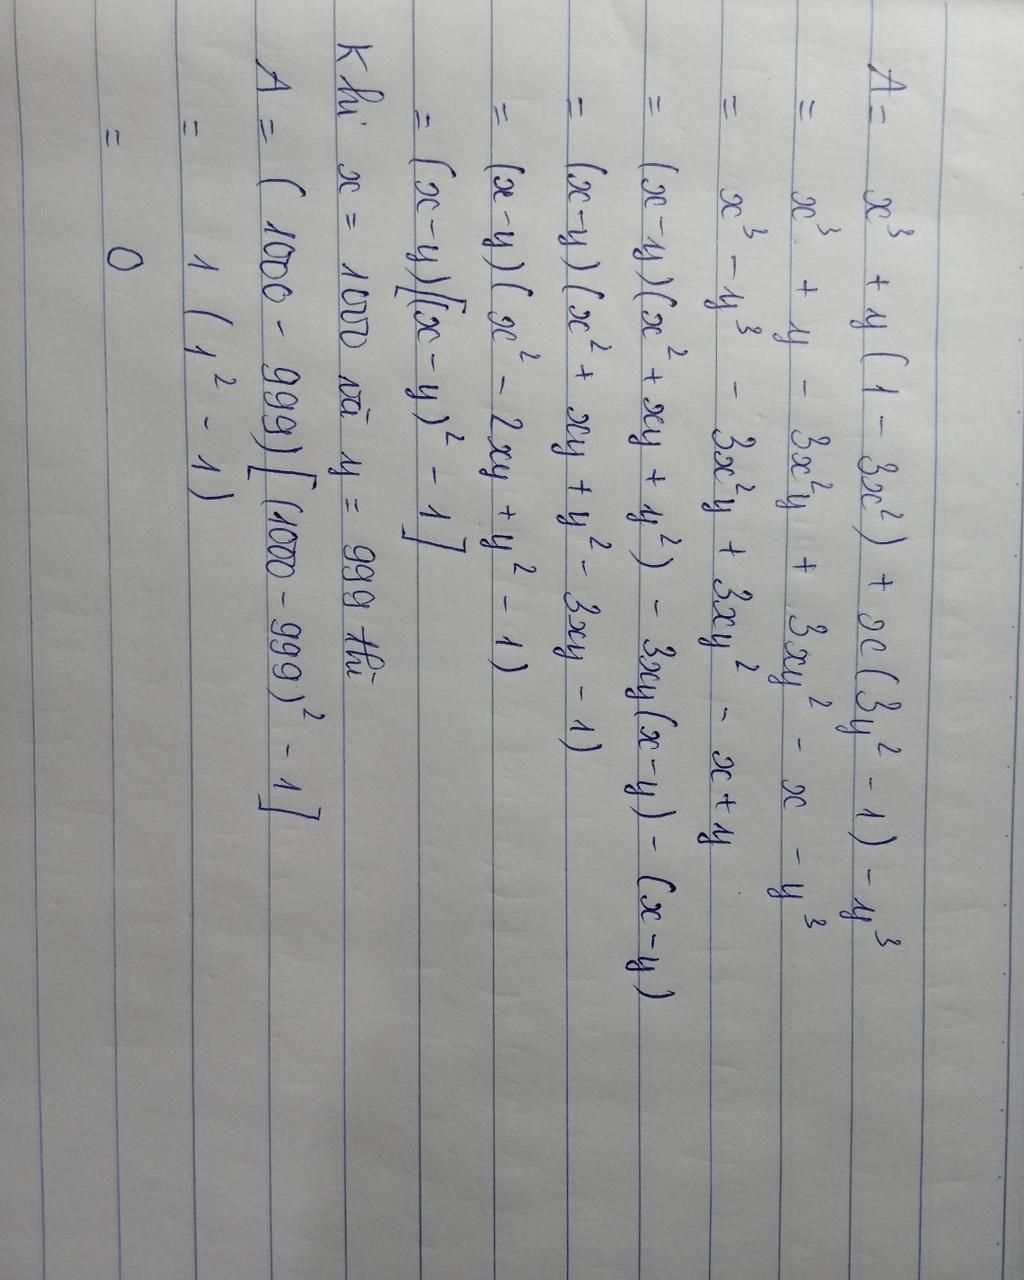 A = x³ + y(1 - 3x²) + x(3y² - 1) - y³
= x³ + y - 3x²y + 3xy² - x - y³
= x³ - y³ - 3x²y + 3xy² - x + y
= (x-y)(x² + xy + y²) - 3xy(x-y) - (x-y)
= (x-y)(x² + xy + y² - 3xy - 1)
= (x-y)(x² - 2xy + y² - 1)
= (x-y)[(x-y)² - 1]
Khi x = 1000 và y = 999 thì
A = (1000 - 999)[(1000 - 999)² - 1]
= 1 (1² - 1)
= 0